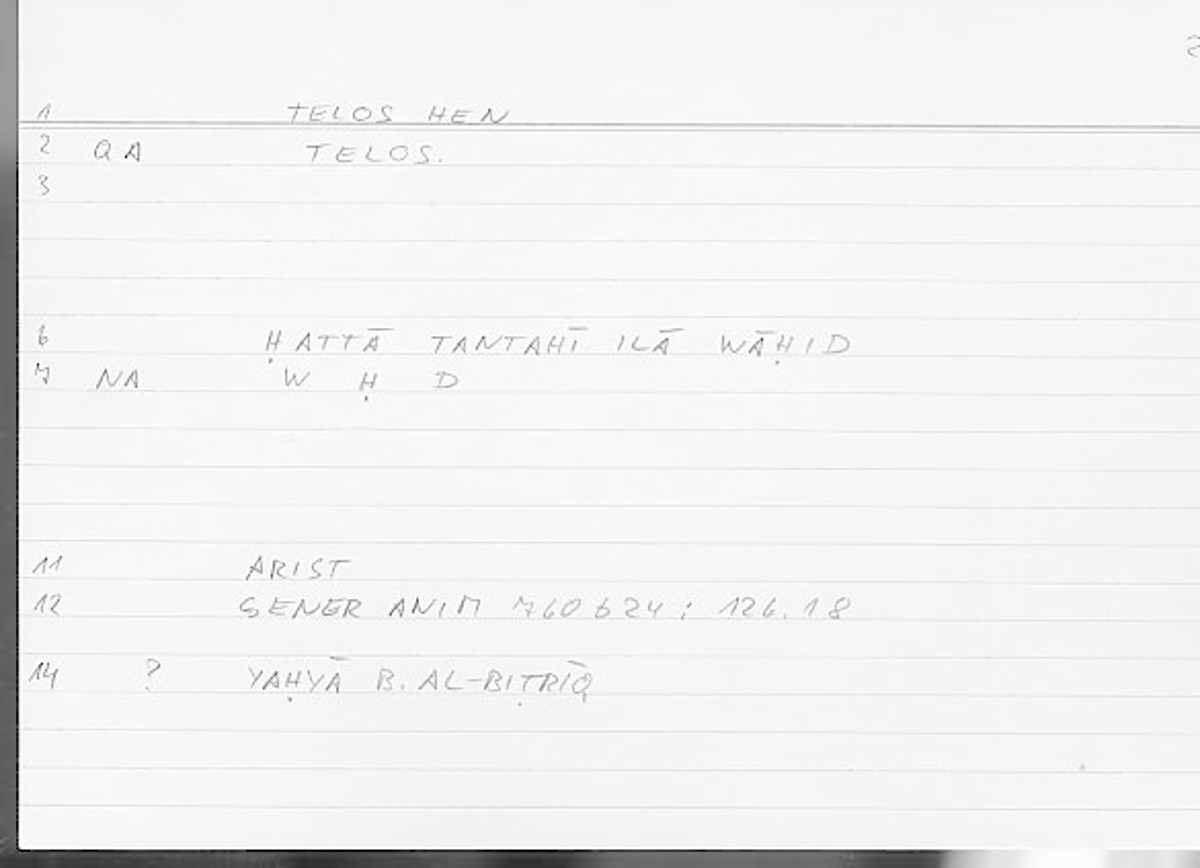 2
1 TELOS HEN
2 QA TELOS.
3
6 ḤATTĀ TANTAHĪ ILĀ WĀḤID
7 NA W Ḥ D
11 ARIST
12 GENER ANIM 760b24; 126.18
14 ? YAḤYĀ B. AL-BIṬRĪQ